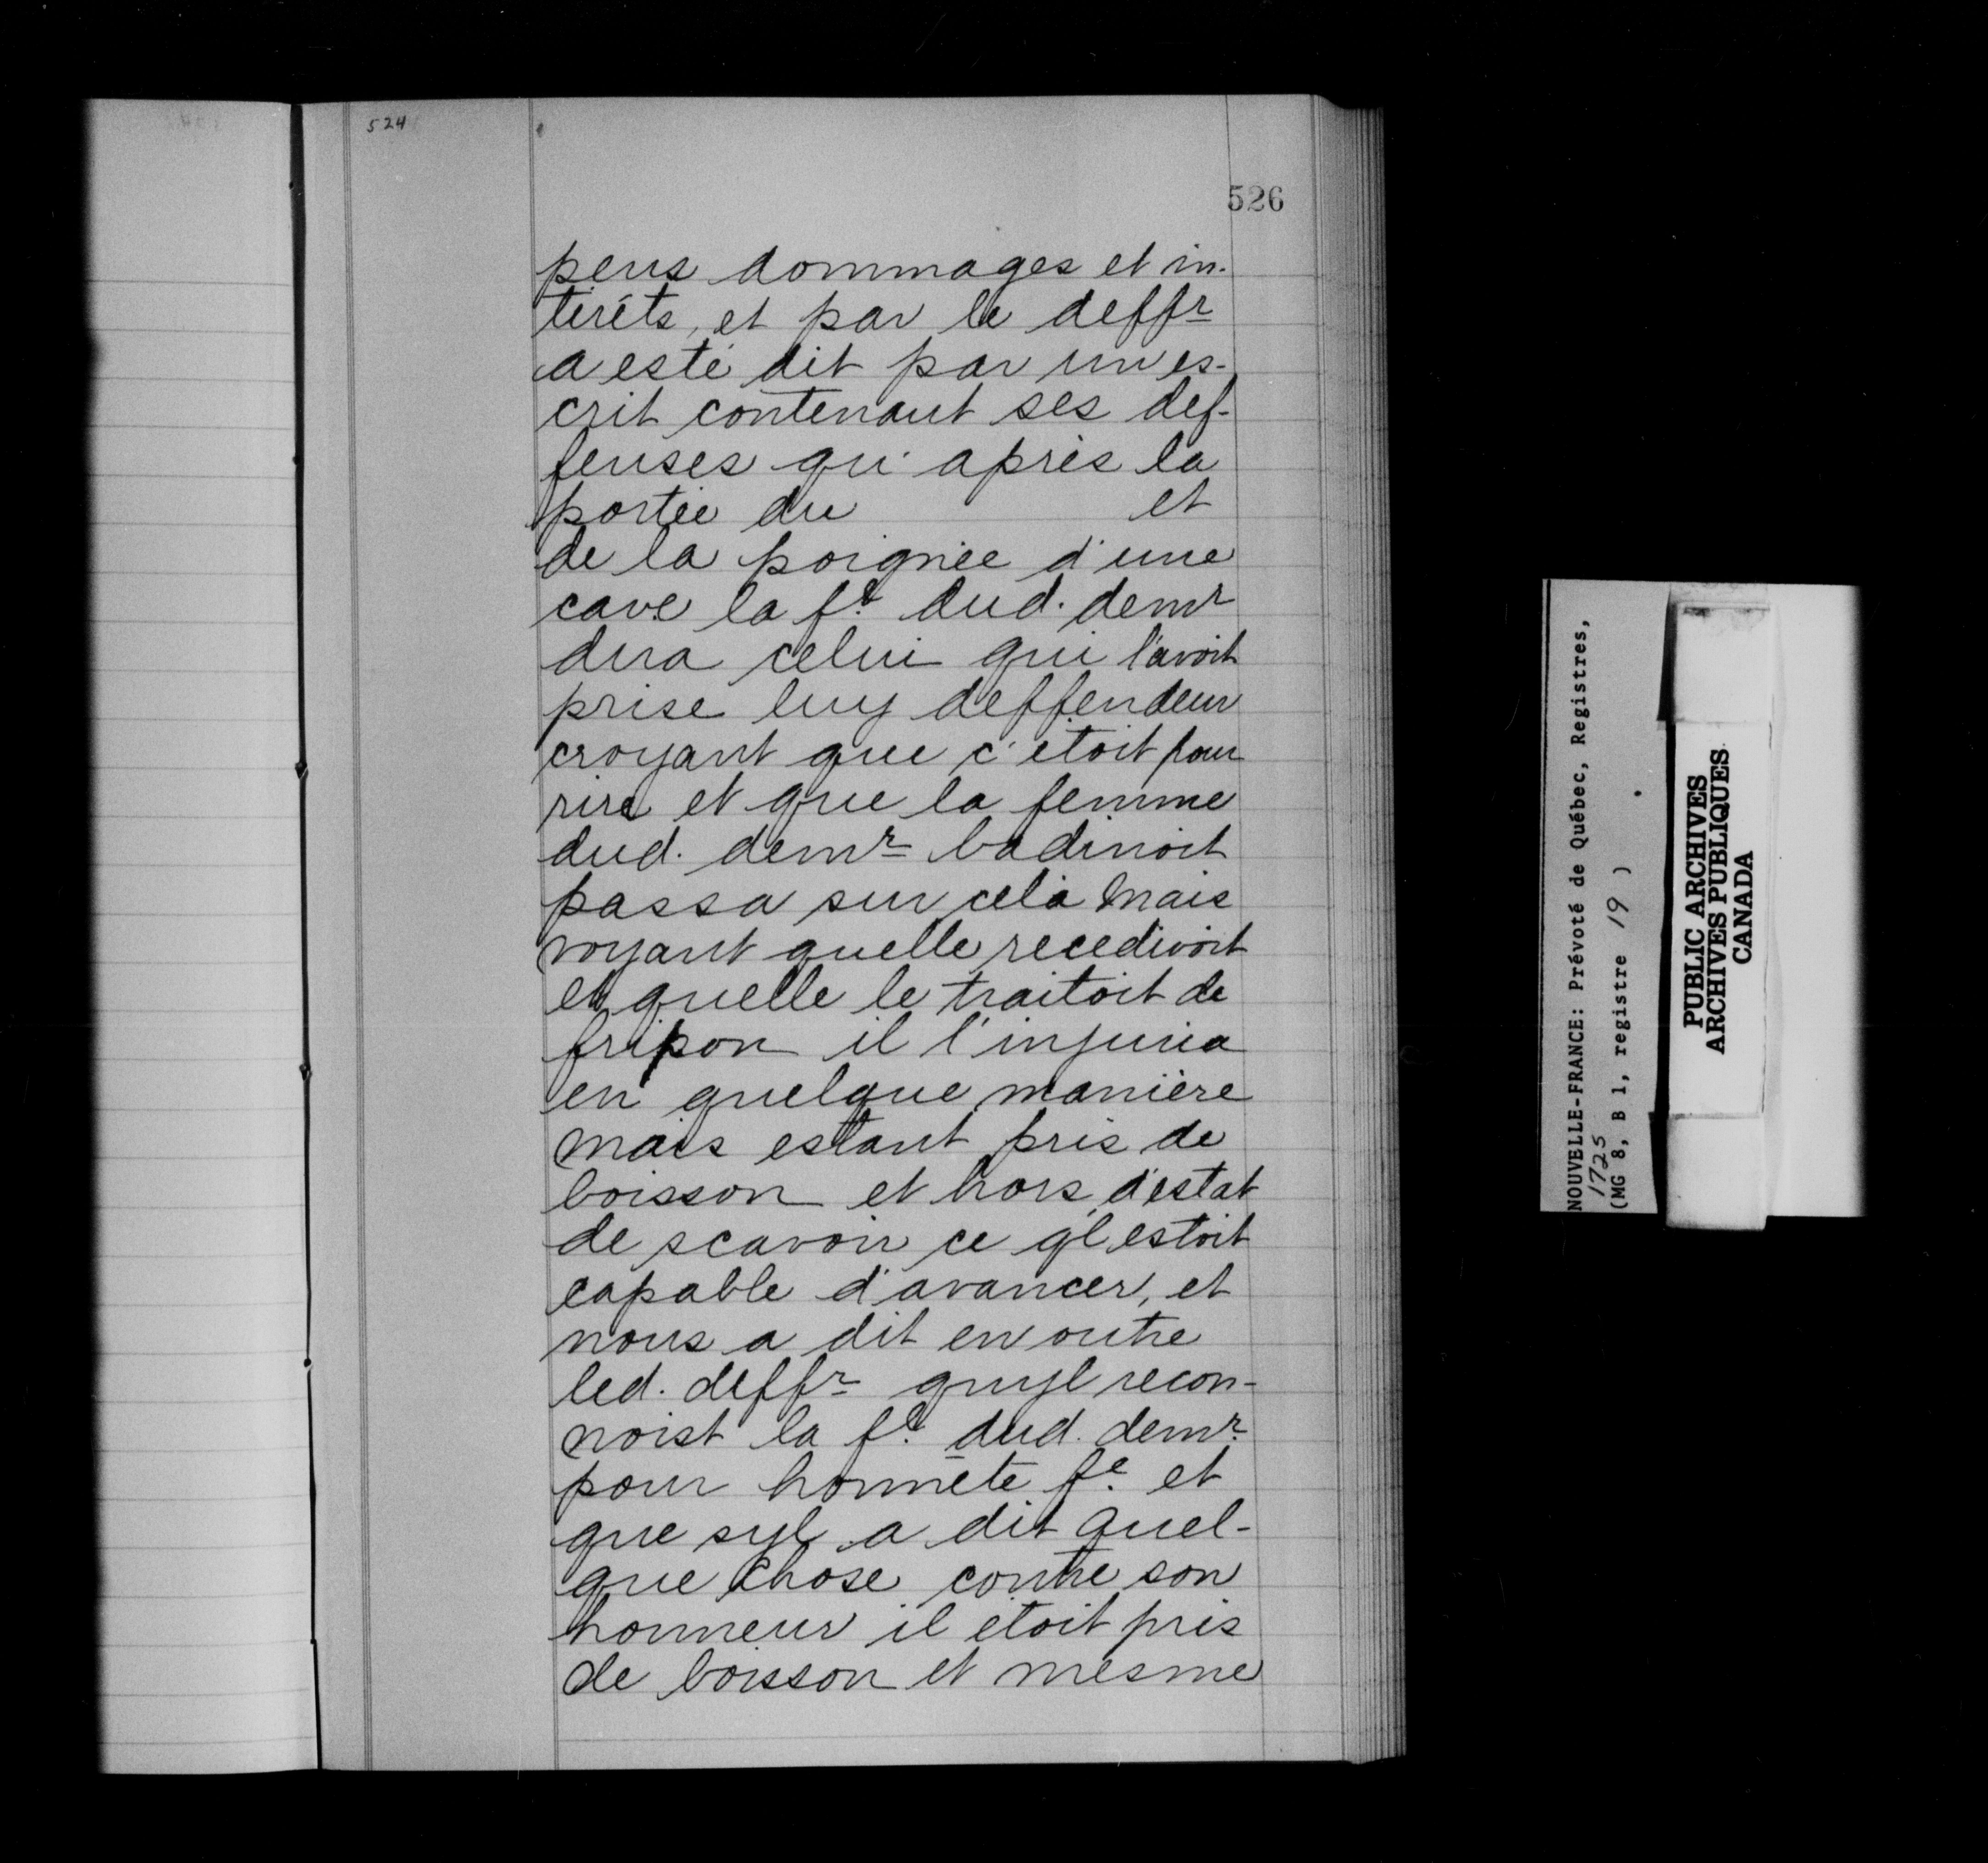 524
526
pens dommages et in-
térêts, et par le deffr
a esté dit par un es-
crit contenant ses def-
fenses qu'après la
portée du et
de la poignée d'une
cave la fe dud. demr
dira celui qui l'avoit
prise luy deffendeur
croyant que c'étoit pour
rire et que la femme
dud. demr badinoit
passa sur celà mais
voyant quelle recedivoit
et quelle le traitoit de
fripon il l'injuria
en quelque manière
mais estant pris de
boisson et hors d'estat
de scavoir ce ql estoit
capable d'avancer, et
nous a dit en outre
led. deffr quyl recon-
noist la fe dud. demr
pour honnête fe et
que syl a dit quel-
que chose contre son
honneur il étoit pris
de boisson et mesme
NOUVELLE-FRANCE: Prévoté de Québec, Registres,
1725
(MG 8, B 1, registre 19 ) .
PUBLIC ARCHIVES
ARCHIVES PUBLIQUES
CANADA